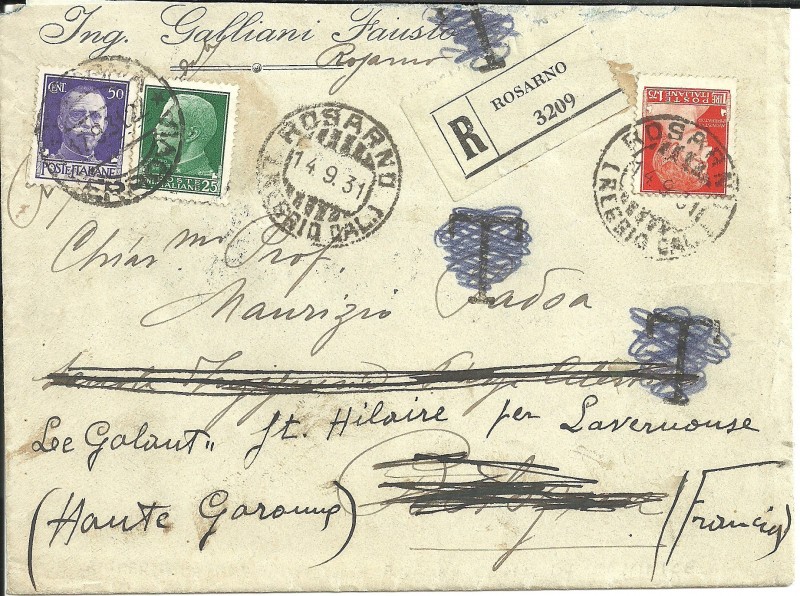 Ing. Galliani Fausto
Rosarno
CENT. 50
POSTE ITALIANE
POSTE
ITALIANE 25
ROSARNO
14.9.31
(REGGIO CAL.)
R
ROSARNO
3209
LIRE 1,75
POSTE
ITALIANE
ROSARNO
14.9.31
(REGGIO CAL.)
T
T
T
Chiar mo Prof.
Maurizio Padoa
"Le Galant" St. Hilaire per Lavernouse
(Haute Garonne) (Francia)